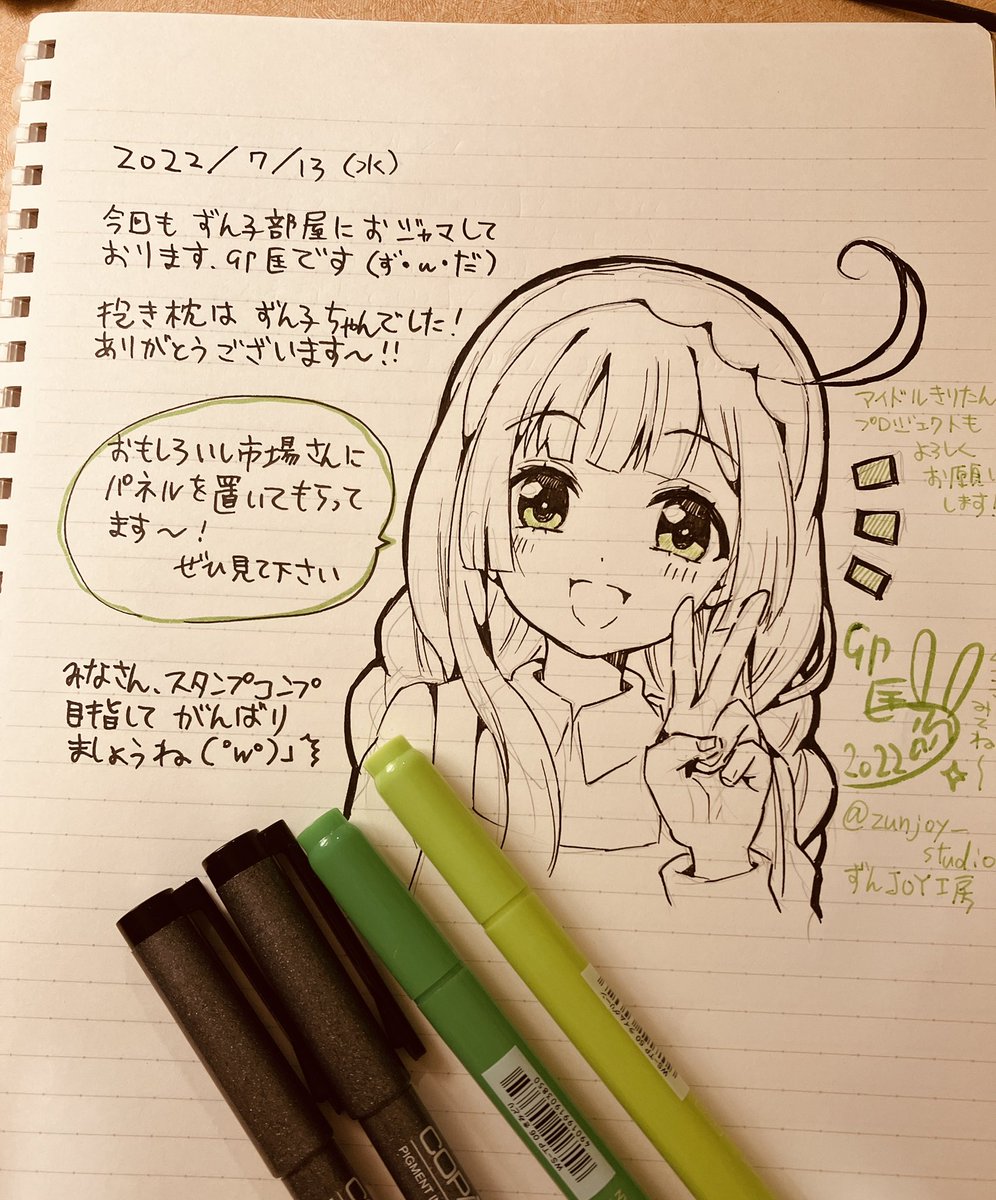 2022/7/13(水)
今回も ずん子部屋に おジャマして
おります、GP匡です(ず・ω・だ)
抱き枕は ずん子ちゃんでした!
ありがとうございます〜!!
おもしろいし市場さんに
パネルを置いてもらって
ます〜!
ぜひ見て下さい
みなさん、スタンプコンプ
目指して がんばり
ましょうね(°w°)
アイドルきりたん
プロジェクトも
よろしく
お願い
します!
GP
匡
2022
@zunjoy_
studio
ずんJOY工房
COP
PIGMENT IN
WS-TP 06 きみどり
4901991903850
WS-TP 60 ライムグリーン